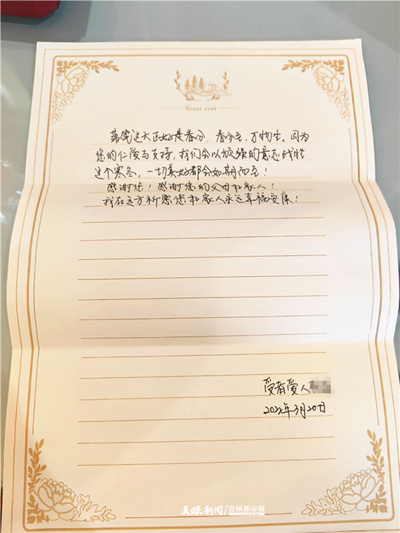 募髓这天正好是春分，春分至，万物生，因为
您的仁爱与支持，我们会以坚强的意志战胜
这个寒冬，一切美好都会如期而至！
感谢您！感谢您的父母和家人！
我在远方祈愿您和家人永远幸福安康！
受者爱人
2022年3月20日
天眼新闻/贵州都市报